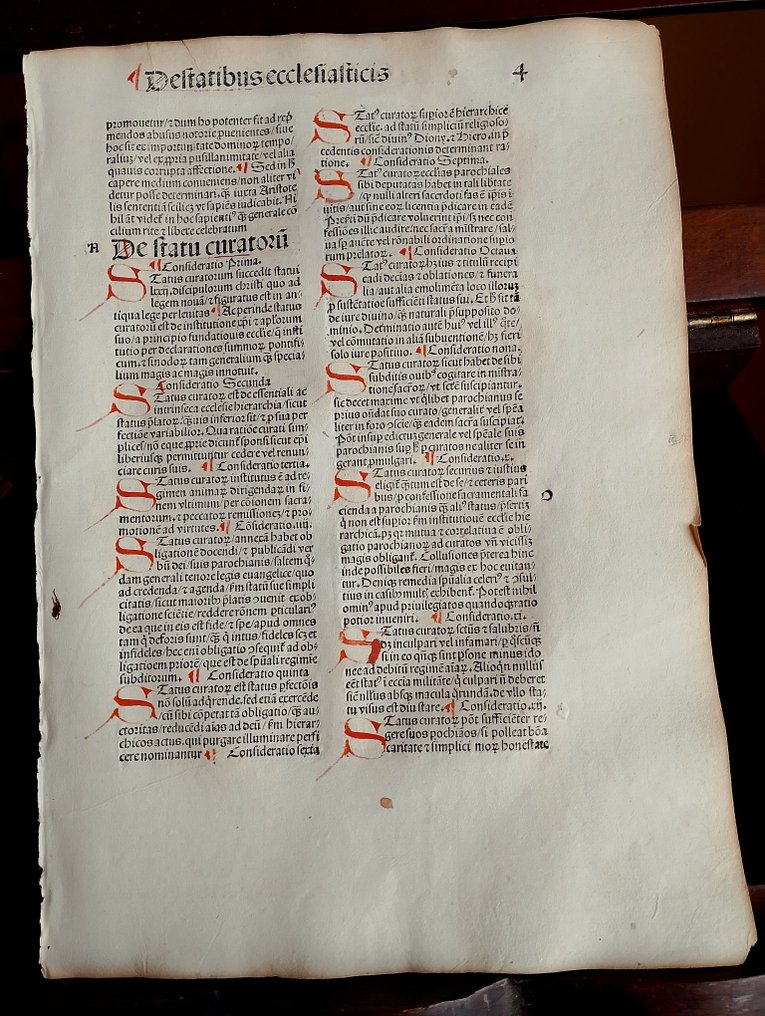 ¶ De statibus ecclesiasticis 4
promouetur/⁊ dum hoc potenter fit ad rep̃
mendos abusus notorie ꝓuenientes/siue
hoc sit ex importunitate dominoꝝ tempo/
raliuꝫ/vel ex ꝓpria pusillanimitate/vel alia
quauis corrupta affectione. ¶ Sed in h
capere medium conueniens/non aliter vi
detur posse determinari. qꝫ iuxta Aristote
lis sententiā scilicꝫ vt sapiēs iudicabit. Ni
hil āt videt᷑ in hoc sapientiꝰ qꝫ generale cō
cilium rite ⁊ libere celebratum
A De statu curatoꝝ
¶ Consideratio Prima.
STatus curatorum succedit statui
lxxij. discipulorum christi quo ad
legem nouā/⁊ figuratus est in an/
tiqua lege per leuitas ¶ Ac perinde status
curatorū est de institutione xp̄i ⁊ apl'orum
suoꝝ a principio fundationis ecclie/q̄ insti
tutio per declarationes summorꝫ pontifi/
cum.⁊ sinodoꝝ tam generalium qꝫ specia/
lium magis ac magis innotuit.
Consideratio Secunda
STatus curatoꝝ est de essentiali ac
intrinseca ecclesie hierarchia/sicut
status p̄latoꝝ. qꝫuis inferior sit/⁊ ꝑ sua per
fectiōe variabilior. Qua ratiōe curati sim
plices/nō eque ꝓprie dicunt᷑ sponsi sicut ep̄i
liberiusqꝫ permittuntur cedere vel renun/
ciare curis suis. ¶ Consideratio tertia.
STatus curatoꝝ institutus ē ad re/
gimen animaꝝ dirigendaꝝ in fi/
nem vltimum/per cōionem sacra/
mentorum.⁊ peccatoꝝ remissionez/⁊ pro/
motionē ad virtutes. ¶ Cōsideratio .iiij.
STatus curatoꝝ/annecā habet ob
ligationē docendi/⁊ publicādi ver
bū dei/suis parochianis/saltem q̄/
dam generali tenore legis euangelice/quo
ad credenda/⁊ agenda/ẜm statū sue simpli
citatis/sicut maioribꝰ p̄latis ꝯuenit ex ob/
ligatione sciētie/reddere rōnem ꝑticulariꝰ
de ea que in eis est fide/⁊ spe/apud omnes
tam q̄ deforis sunt/qꝫ q̄ intus/fideles scꝫ et
infideles/hec eni obligatio ꝯsequit᷑ ad ob/
ligatioem priorē/que est de sp̄uali regimie
subditorum. ¶ Consideratio quinta
STatus curatoꝝ est status ꝑfectōis
nō solū adqrende.sed etiā exercēde
/cū sibi cōpetat tā obligatio/qꝫ au/
ctoritas/reducēdi aīas ad deū/ẜm hierar/
chicos actus.qui purgare illuminare perfi
cere nominantur ¶ Consideratio sexta
STatꝰ curatoꝝ supiorē hierarchicē
ecclie.ad statū simpliciū religioso/
rū/sic diuinꝰ Diony.⁊ Hiero.in p̄
cedentis considerationis determinant ra/
tione. ¶ Consideratio Septima.
STatꝰ curatoꝝ ecclīas parochiales
sibi deputatas habet in tali libtate
/qꝫ nulli alteri sacerdoti fas ē ip̄is ī
uitis/aut sine eoꝝ licentia p̄dicare in eadē
Preterī dū p̄dicare voluerint ip̄i/sꝫ nec con
fessiōes illic audire/nec sacra mistrare/sal/
ua sꝑ aucte vel rōnabili ordinatione supio
rum prelatoꝝ. ¶ Consideratio Octaua
STatꝰ curatoꝝ hꝫ ius ⁊ titulū recipi
endi decias ⁊ oblationes/⁊ funera
lia/vel alia emolimēta loco illoruꝫ
ꝓ sustētatiōe sufficiēti status sui. Et h̄ sit tā
de iure diuino/qꝫ naturali p̄supposito do/
minio. Determinatio autē huiꝰ vel illiꝰ q̄te/
vel ꝯmutatio in aliā subuentionē/hꝫ fieri
solo iure positiuo. ¶ Consideratio nona.
STatus curatoꝝ sicut habet de sibi
subditis quibꝰ cogitare in mistra/
tione sacroꝝ/vt scꝫ suscipiantur.
sic decet maxime vt q̄libet parochianus se
prius ondat suo curato/generalit᷑ vel sp̄ea
liter in foro ꝯscie/qꝫ eadem sacra suscipiat.
Pōt insup edictuꝫ generale vel sp̄eale suis
parochianis sup h̄ ꝑ curatos ne aliter se in
gerant ꝓmulgari. ¶ Consideratio .x.
STatus curatoꝝ securius ⁊ iustius
eligit᷑ qꝫtum est de se/⁊ ceteris pari
bus/ꝓ confessione sacramentali fa
cienda a parochianis qꝫ aliꝰ status/p̄sertīꝫ
q̄ non est supior ẜm institutiōnē ecclie hie
rarchicā. pꝫ qꝛ mutua ⁊ correlatiua ē obli/
gatio parochianoꝝ ad curatos vn̄ vicissīꝫ
magis obligant᷑. Collusiones p̄terea hinc
inde possibiles fieri/magis ex hoc euitan/
tur. Deniqꝫ remedia sp̄ualia celeriꝰ ⁊ ꝯsul/
tius in casibꝰ mult᷑ exhibent᷑. Potest nihil
ominꝰ apud priuilegiatos quandoqꝫ ratio
potior inueniri. ¶ Consideratio .xi.
STatus curatoꝝ sctūs ⁊ salubris/n̄
dꝫ inculpari vel infamari/ꝑ q̄scūqꝫ
si in eo quiqꝫ sunt ꝑsone minus ido
nee ad debitū regimē aīaꝝ. Alioqn̄ nullus
eēt statꝰ ī ecclia militāte/q̄ culpari n̄ deberet
siē nullus absqꝫ macula q̄rundā. de vllo sta/
tu visus est diu stare. ¶ Consideratio .xij.
STatus curatoꝝ pōt sufficiēter re/
gere suos ꝓchianos/si polleat bōa
caritate ⁊ simplici moꝝ honestate